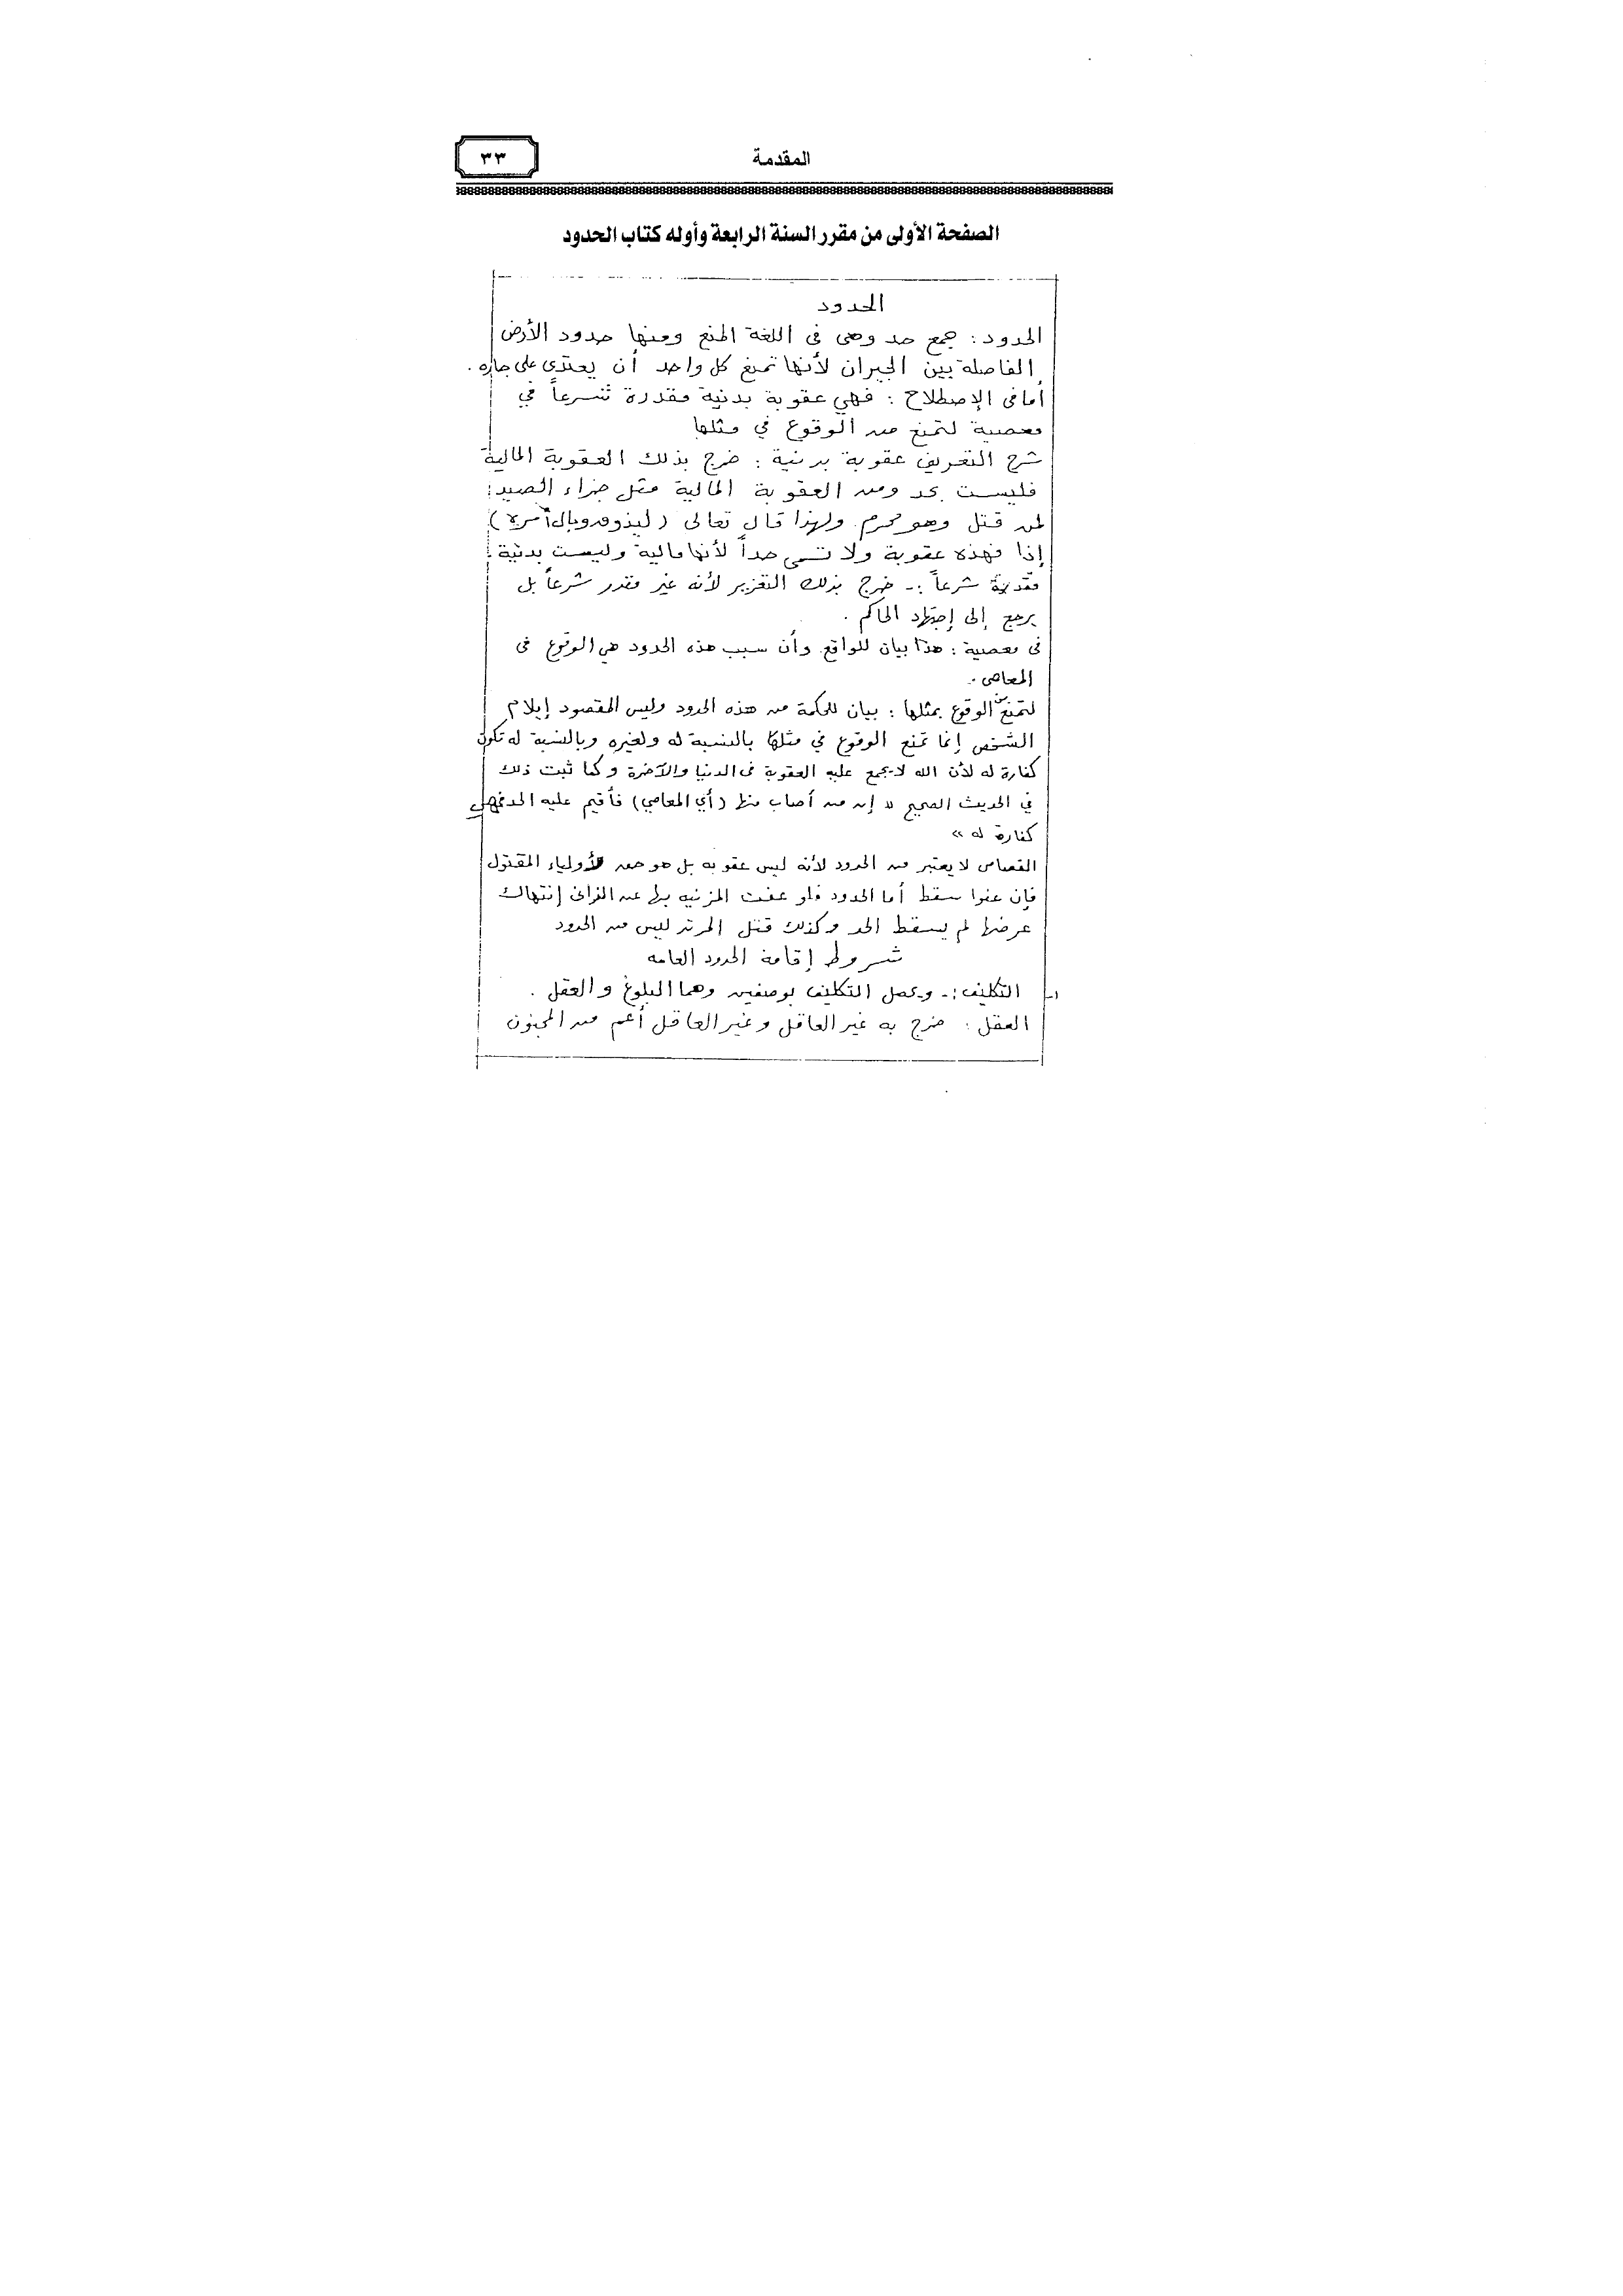 المقدمة
٣٣
الصفحة الأولى من مقرر السنة الرابعة وأوله كتاب الحدود
الحدود
الحدود : جمع حد وهى فى اللغة المنع ومنها حدود الأرض
الفاصلة بين الجيران لأنها تمنع كل واحد أن يعتدى على جاره .
أما فى الإصطلاح : فهي عقوبة بدنية مقدرة شرعاً في
معصية لتمنع من الوقوع في مثلها
شرح التعريف عقوبة بدنية : خرج بذلك العقوبة المالية
فليست بحد ومن العقوبة المالية مثل جزاء الصيد
لمن قتل وهو محرم ولهذا قال تعالى ( ليذوق وبال أمره )
إذا فهذه عقوبة ولا تسمى حداً لأنها مالية وليست بدنية :
مقدرة شرعاً :- خرج بذلك التعزير لأنه غير مقدر شرعاً بل
يرجع إلى إجتهاد الحاكم .
فى معصية : هذا بيان للواقع وأن سبب هذه الحدود هي الوقوع فى
المعاصى .
لتمنع من الوقوع بمثلها : بيان للحكمة من هذه الحدود وليس المقصود إيلام
الشخص إنما تمنع الوقوع في مثلها بالنسبة له ولغيره وبالنسبة له تكون
كفارة له لأن الله لا يجمع عليه العقوبة فى الدنيا والآخرة وكما ثبت ذلك
في الحديث الصحيح « إن من أصاب منها ( أي المعاصي ) فأقيم عليه الحد فهي
كفارة له »
القصاص لا يعتبر من الحدود لأنه ليس عقوبه بل هو حق لأولياء المقتول
فإن عفوا سقط أما الحدود فلو عفت المزنيه بها عن الزانى إنتهاك
عرضها لم يسقط الحد وكذلك قتل المرتد ليس من الحدود
شروط إقامة الحدود العامه
١- التكليف :- ويحصل التكليف بوصفين وهما البلوغ والعقل .
العقل : خرج به غير العاقل وغير العاقل أعم من المجنون